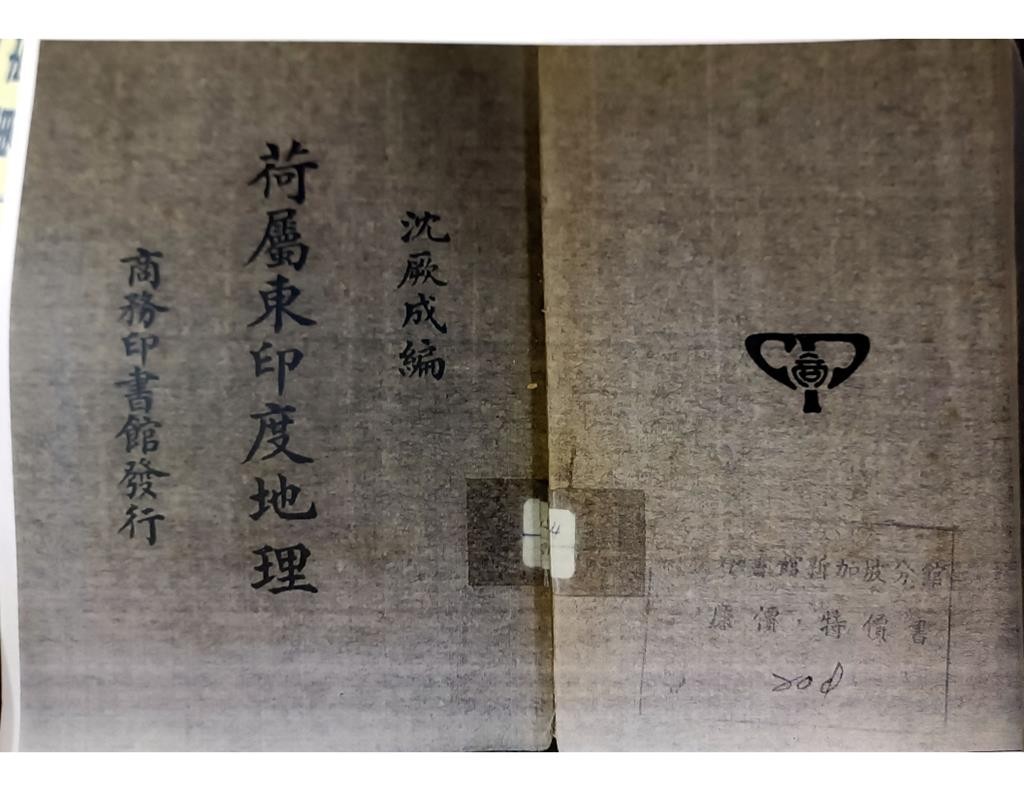 沈厥成編
荷屬東印度地理
商務印書館發行
商
書館新加坡分館
廉價·特價書